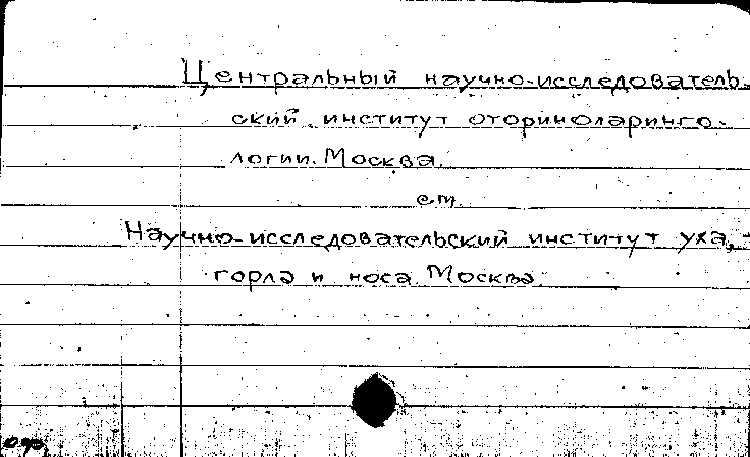 Центральный научно-исследователь-
ский институт оториноларинго-
логии. Москва.
см.
Научно-исследовательский институт уха,
горла и носа. Москва.